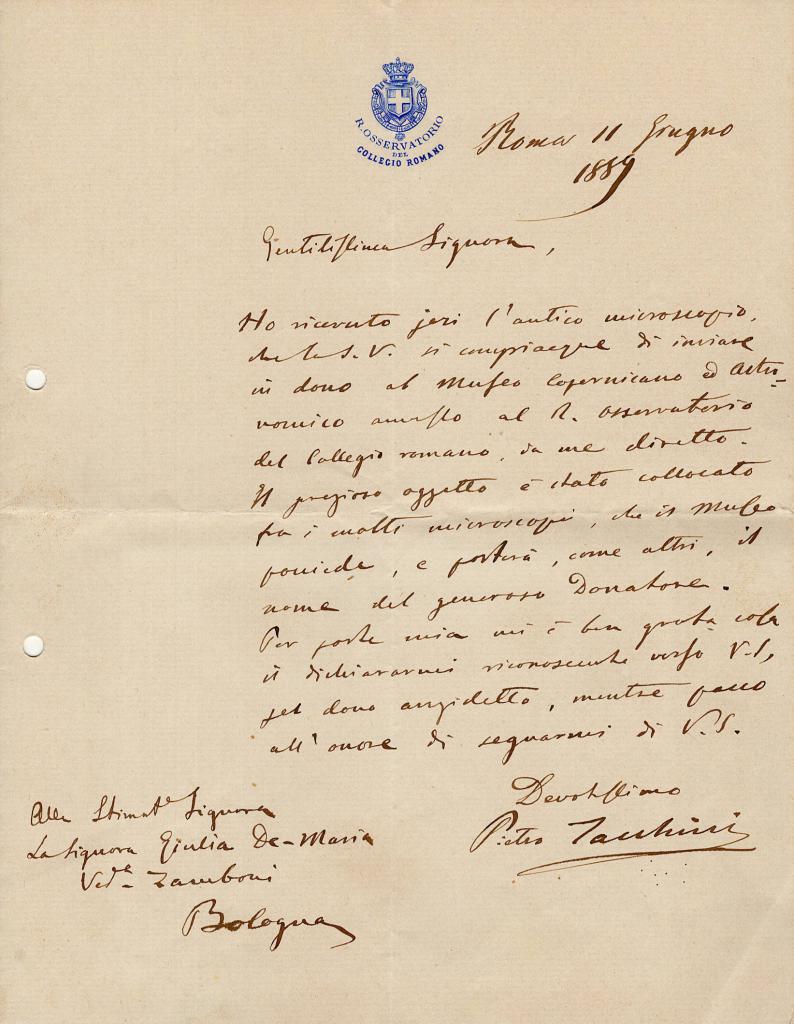 R. OSSERVATORIO
DEL
COLLEGIO ROMANO
Roma 11 Giugno
1889
Gentilissima Signora,
Ho ricevuto jeri l'antico microscopio,
che la S. V. si compiacque di inviare
in dono al Museo Copernicano ed Astro-
nomico annesso al R. Osservatorio
del Collegio romano, da me diretto.
Il prezioso oggetto è stato collocato
fra i molti microscopi, che il Museo
possiede, e porterà, come altri, il
nome del generoso Donatore.
Per parte mia mi è ben grata cosa
il dichiararmi riconoscente verso V. S.,
pel dono anzidetto, mentre passo
all'onore di segnarmi di V. S.
Devotissimo
Pietro Tacchini
Alla Stimat.e Signora
La Signora Giulia De-Maria
Ved.a Zamboni
Bologna